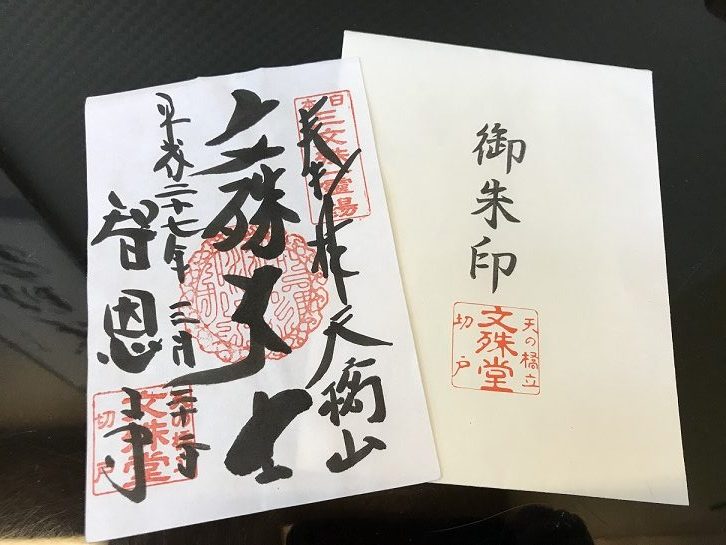 日本三文殊靈場
拝 天橋山
文殊大士
平成二十七年 三月
智恩寺
天の橋立
文殊堂
切戸
御朱印
天の橋立
文殊堂
切戸